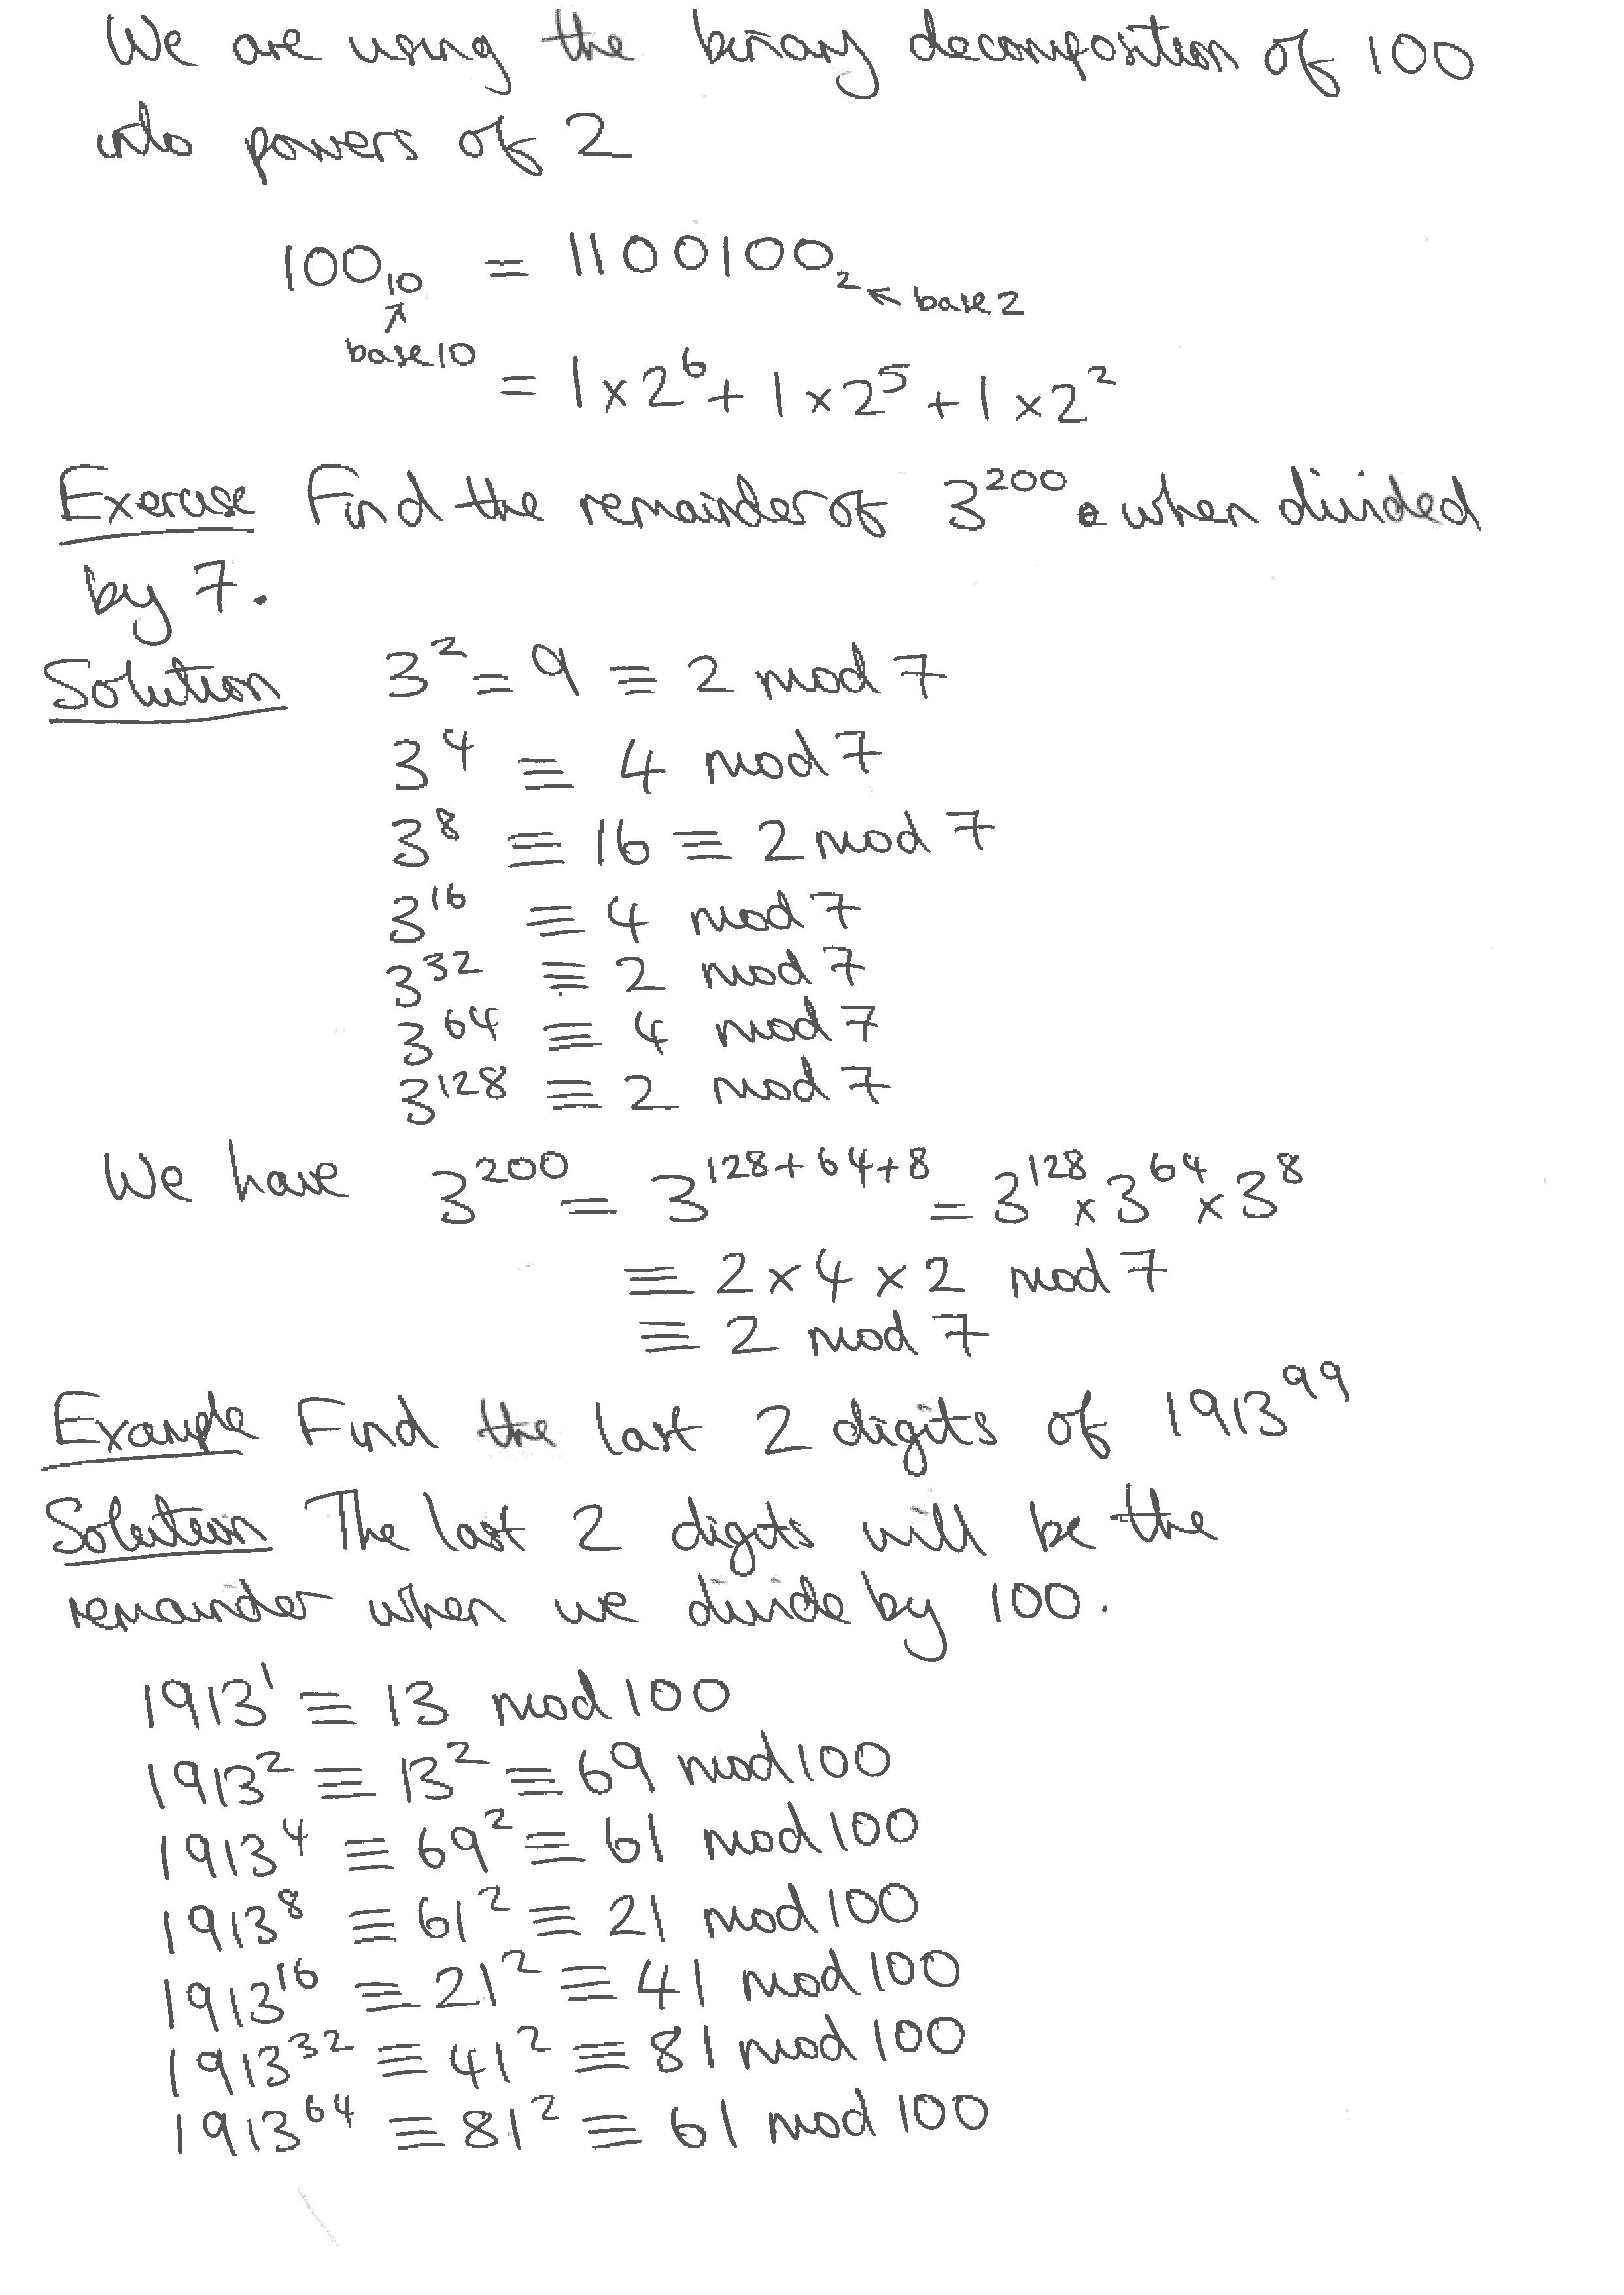 We are using the binary decomposition of 100
into powers of 2
100₁₀ = 1100100₂ ← base 2
↑
base 10
= 1 × 2⁶ + 1 × 2⁵ + 1 × 2²
Exercise Find the remainder of 3²⁰⁰ when divided
by 7.
Solution 3² = 9 ≡ 2 mod 7
3⁴ ≡ 4 mod 7
3⁸ ≡ 16 ≡ 2 mod 7
3¹⁶ ≡ 4 mod 7
3³² ≡ 2 mod 7
3⁶⁴ ≡ 4 mod 7
3¹²⁸ ≡ 2 mod 7
We have 3²⁰⁰ = 3¹²⁸⁺⁶⁴⁺⁸ = 3¹²⁸ × 3⁶⁴ × 3⁸
≡ 2 × 4 × 2 mod 7
≡ 2 mod 7
Example Find the last 2 digits of 1913⁹⁹
Solution The last 2 digits will be the
remainder when we divide by 100.
1913¹ ≡ 13 mod 100
1913² ≡ 13² ≡ 69 mod 100
1913⁴ ≡ 69² ≡ 61 mod 100
1913⁸ ≡ 61² ≡ 21 mod 100
1913¹⁶ ≡ 21² ≡ 41 mod 100
1913³² ≡ 41² ≡ 81 mod 100
1913⁶⁴ ≡ 81² ≡ 61 mod 100